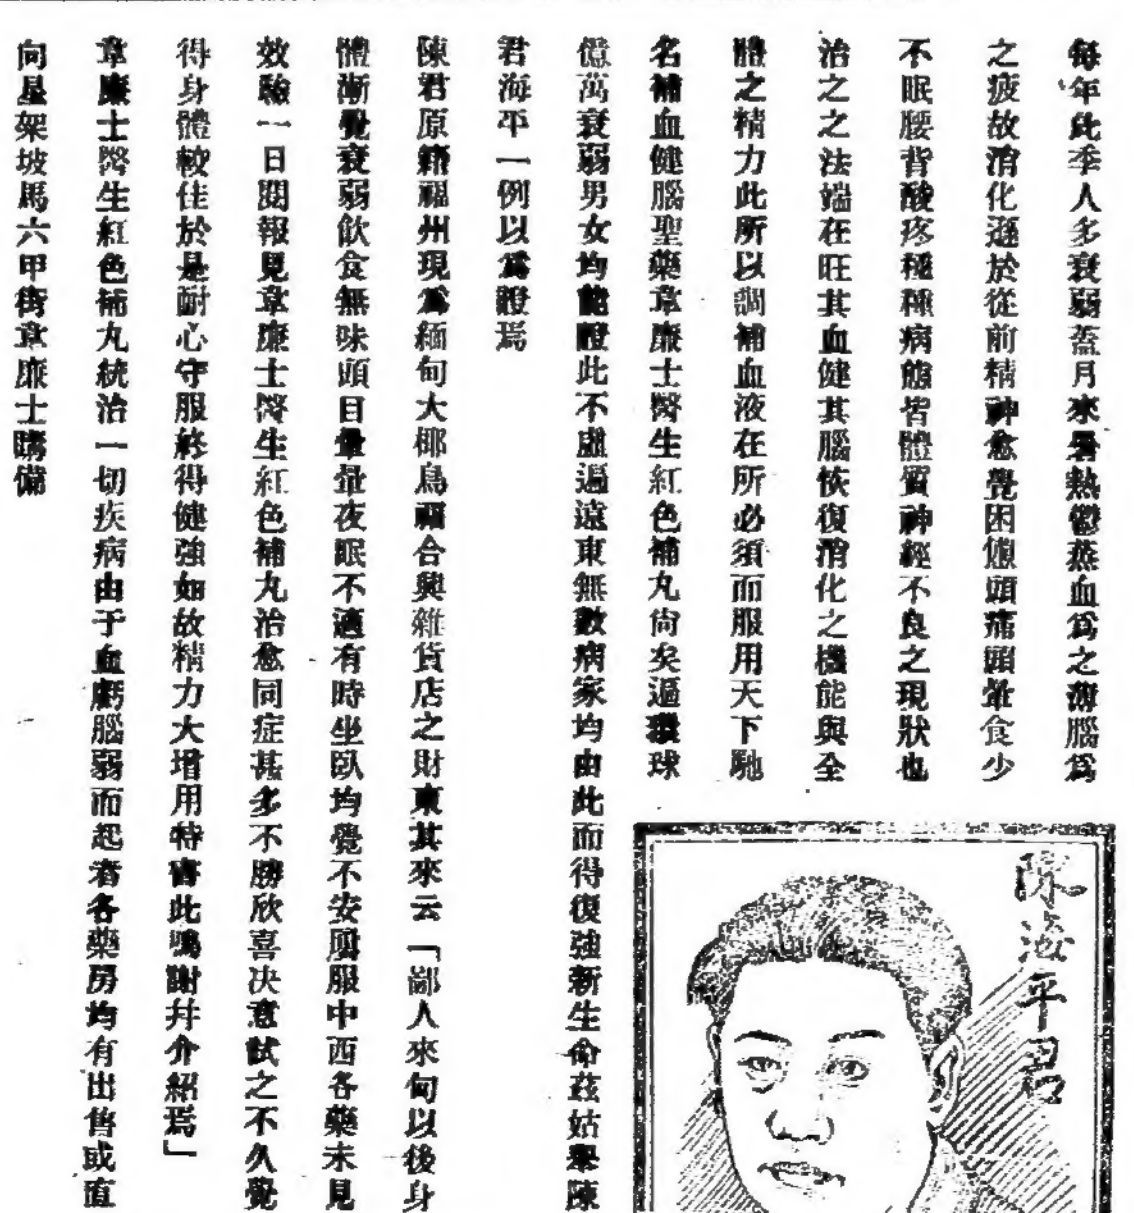 每年此季人多衰弱蓋月來暑熱鬱蒸血爲之薄腦爲
之疲故消化遜於從前精神愈覺困憊頭痛頭暈食少
不眠腰背酸疼種種病態皆體質神經不良之現狀也
治之之法端在旺其血健其腦恢復消化之機能與全
體之精力此所以調補血液在所必須而服用天下馳
名補血健腦聖藥韋廉士醫生紅色補丸尙矣遍環球
億萬衰弱男女均能證此不虛遍遠東無數病家均由此而得復強新生命茲姑舉陳
君海平一例以爲證焉
陳君原籍福州現爲緬甸大椰鳥福合興雜貨店之財東其來云「鄙人來甸以後身
體漸覺衰弱飲食無味頭目暈暈夜眠不適有時坐臥均覺不安屢服中西各藥未見
效驗一日閱報見韋廉士醫生紅色補丸治愈同症甚多不勝欣喜决意試之不久覺
得身體較佳於是耐心守服終得健強如故精力大增用特書此鳴謝幷介紹焉」
韋廉士醫生紅色補丸統治一切疾病由于血虧腦弱而起者各藥房均有出售或直
向星架坡馬六甲街韋廉士購備
陳海平君